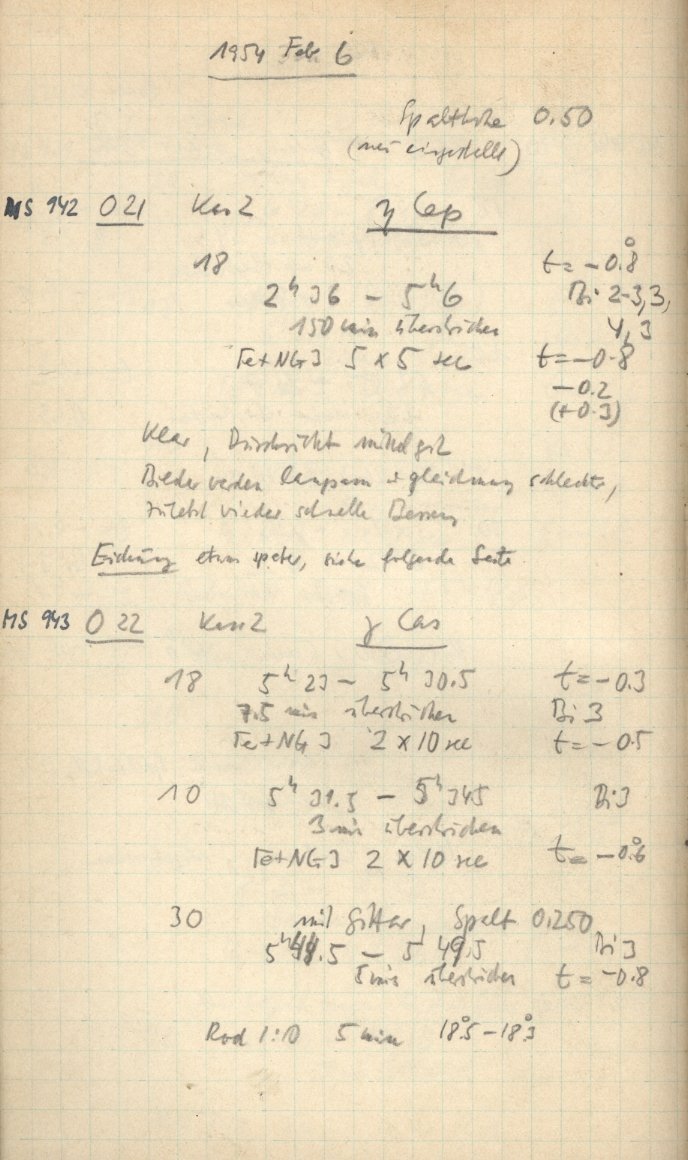 1954 Feb 6
Spalthöhe 0.50
(neu eingestellt)
MS 942 O 21 Kas 2 η Cep
18 t = -0.°8
2h 36 - 5h 6 Bi 2-3, 3,
150 min überstrichen 4, 3
Fe+NG3 5 x 5 sec t = -0.8
-0.2
(+0.3)
Klar, Durchsicht mittel gut
Bilder werden langsam schlechter,
zuletzt wieder schnelle
Eichung etwas später, siehe folgende Seite
MS 943 O 22 Kas 2 γ Cas
18 5h 23 - 5h 30.5 t = -0.3
7.5 min überstrichen Bi 3
Fe+NG3 2 x 10 sec t = -0.5
10 5h 31.5 - 5h 34.5 Bi 3
3 min überstrichen
Fe+NG3 2 x 10 sec t = -0.°6
30 mit Gitter, Spalt 0.250
5h 44.5 - 5h 49.5 Bi 3
5 min überstrichen t = -0.8
Rod 1:10 5 min 18.°5 - 18.°3